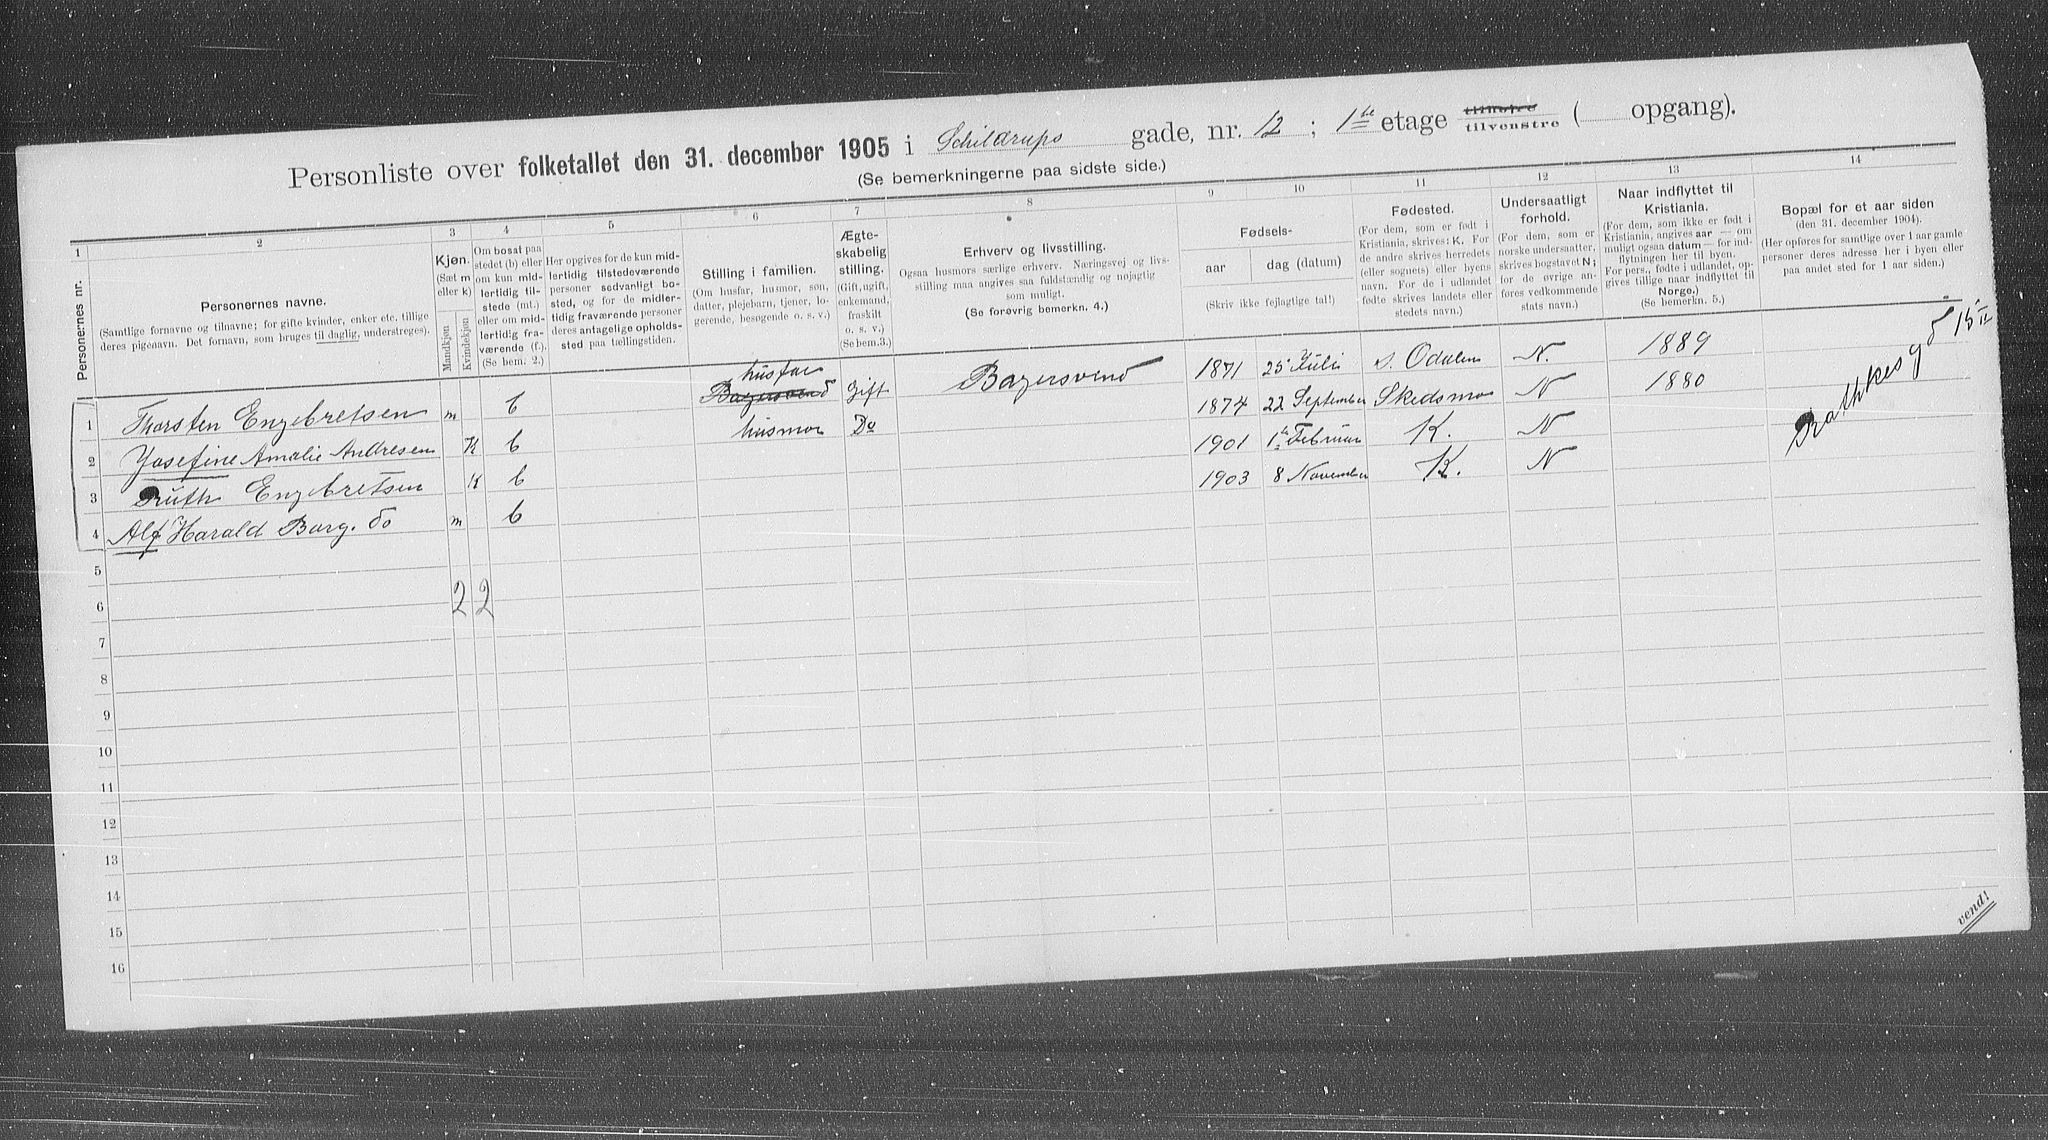 Personliste over folketallet den 31. december 1905 i Schildrups gade, nr. 12 ; 1ste etage tilhøire tilvenstre ( opgang).
(Se bemerkningerne paa sidste side.)
1 2 3 4 5 6 7 8 9 10 11 12 13 14
Personernes nr.
Personernes navne.
(Samtlige fornavne og tilnavne; for gifte kvinder, enker etc. tillige deres pigenavn. Det fornavn, som bruges til daglig, understreges).
Kjøn.
(Sæt m eller k)
Mandkjøn
Kvindekjøn
Om bosat paa stedet (b) eller om kun midlertidig tilstede (mt.) eller om midlertidig fraværende (f.). (Se bem. 2.)
Her opgives for de kun midlertidig tilstedeværende personer sedvanligt bosted, og for de midlertidig fraværende personer deres antagelige opholdssted paa tællingstiden.
Stilling i familien.
(Om husfar, husmor, søn, datter, plejebarn, tjener, logerende, besøgende o. s. v.)
Ægteskabelig stilling.
(Gift, ugift, enkemand, fraskilt o. s. v.) (Se bem. 3.)
Erhverv og livsstilling.
Ogsaa husmors særlige erhverv. Næringsvej og livsstilling maa angives saa fuldstændig og nøjagtig som muligt.
(Se forøvrig bemerkn. 4.)
Fødsels-
aar
dag (datum)
(Skriv ikke fejlagtige tal!)
Fødested.
(For dem, som er født i Kristiania, skrives: K. For de andre skrives herredets (eller sognets) eller byens navn. For de i udlandet fødte skrives landets eller stedets navn.)
Undersaatligt forhold.
(For dem, som er norske undersaatter, skrives bogstavet N; for de øvrige anføres vedkommende stats navn.)
Naar indflyttet til Kristiania.
(For dem, som ikke er født i Kristiania, angives aar — om muligt ogsaa datum — for indflytningen her til byen. For pers., fødte i udlandet, opgives tillige naar indflyttet til Norge.)
(Se bemerkn. 5.)
Bopæl for et aar siden
(den 31. december 1904).
(Her opføres for samtlige over 1 aar gamle personer deres adresse her i byen eller paa andet sted for 1 aar siden.)
1 Thorsten Engebretsen m b husfar Bagersvend Gift Bagersvend 1871 25 Juli s. Odalen N. 1889 Rathkesgd 15 II
2 Josefine Amalie Andresen K b husmor Do 1874 22 September Skedsmo N 1880
3 Ruth Engebretsen K b 1901 1ste Februar K. N
4 Alf Harald Borg. do m b 1903 8 November K. N
5
6 2 2
7
8
9
10
11
12
13
14
15
16
vend!